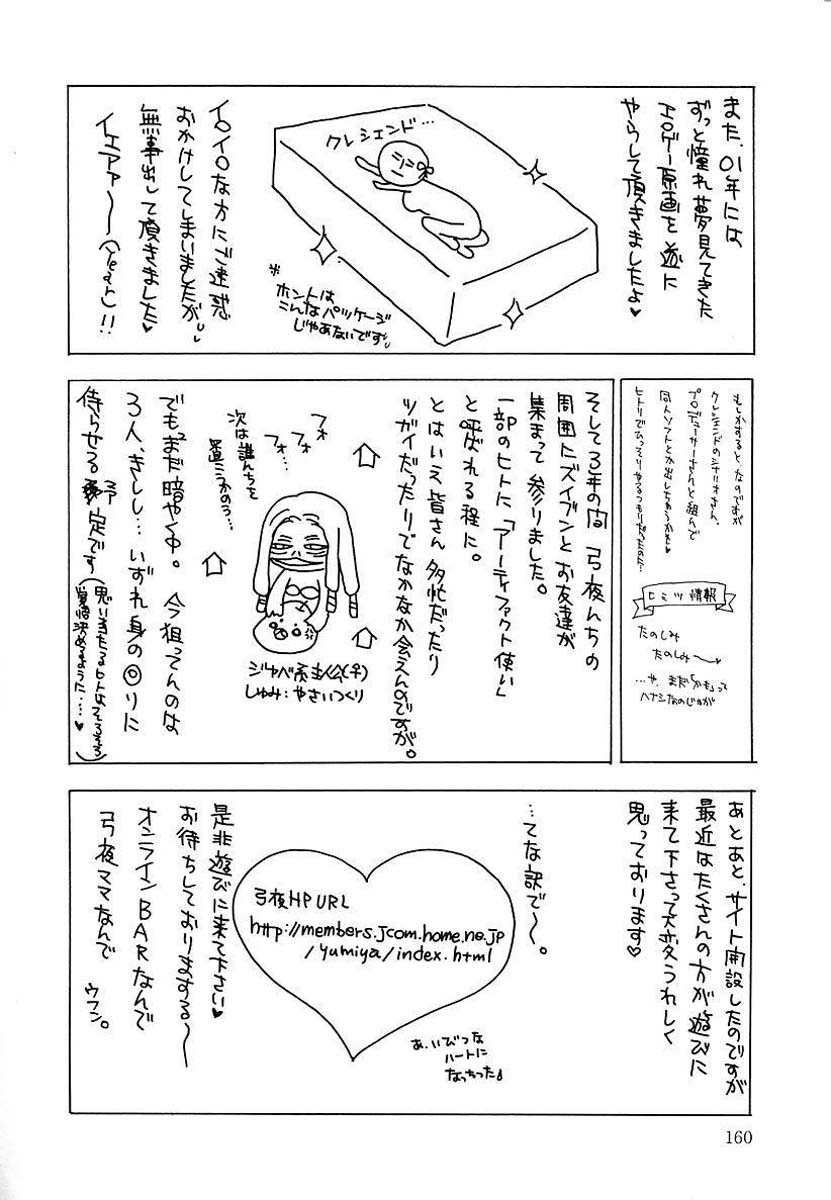 また、01年には
ずっと憧れ夢見てきた
エロゲー原画を遂に
やらして頂きましたよ♥
クレシェンド…
※ホントは
こんなパッケージ
じゃあないです
イロイロな方にご迷惑
おかけしてしまいましたが、
無事出して頂きました♥
イエアァ〜(Yeah)!!
もしかすると、なのですが
クレシェンドのシナリオさん、
プロデューサーさんと組んで
同人ソフトとか出しちゃうかも♥
ヒトリでひっそりやるつもりだったのに…
ヒミツ情報
たのしみ
たのしみ〜
…や、まだ「かも」って
ハナシなのじゃが
そして3年の間 弓夜んちの
周囲にズイブンとお友達が
集まって参りました。
一部のヒトに「アーティファクト使い」
と呼ばれる程に。
とはいえ皆さん多忙だったり
ツガイだったりでなかなか会えんのですが。
フォ
フォ
フォ…
次は誰んちを
置こうかのう…
しゅみ:やさいつくり
でもっまだ暗やく中。今狙ってんのは
3人、きしし…いずれ身の回りに
侍らせる予定です
(思い当たるヒトは
覚悟決めるように…♥)
あとあと、サイト開設したのですが
最近はたくさんの方が遊びに
来て下さって大変うれしく
思っております♥
…てな訳で〜。
弓夜HP URL
http://members.jcom.home.ne.jp
/yumiya/index.html
あ、いびつな
ハートに
なっちった
是非遊びに来て下さい♥
お待ちしておりまする〜
オンラインBARなんで
弓夜ママなんで
ウフン。
160